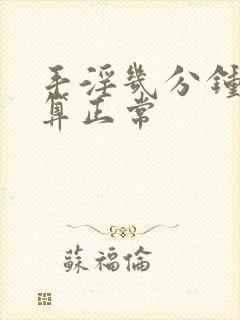 手淫幾分鐘
算正常
蘇福倫